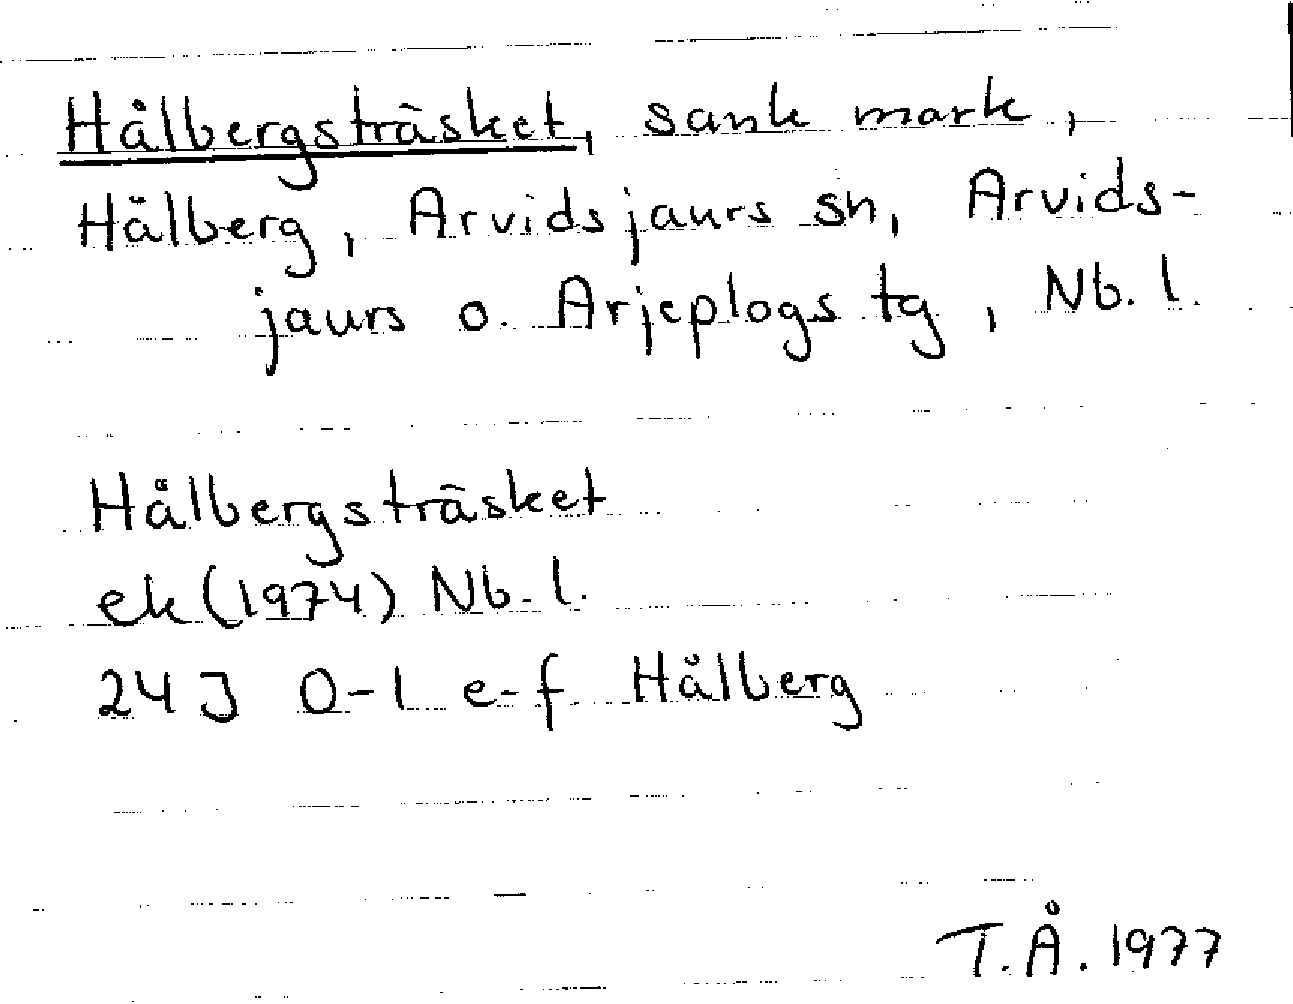 Hålbergsträsket, sank mark,
Hålberg, Arvidsjaurs sn, Arvids-
jaurs o. Arjeplogs tg, Nb. l.
Hålbergsträsket
ek (1974) Nb. l.
24 J 0-1 e-f Hålberg
T.Å. 1977